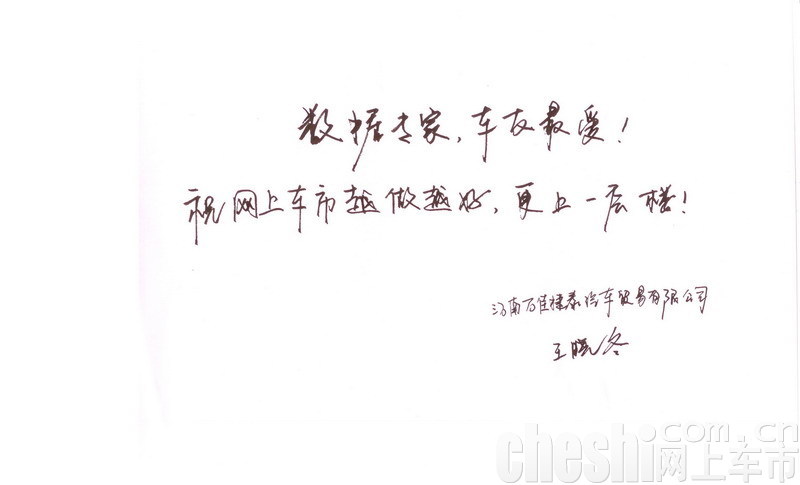 数据专家，车友最爱！
祝网上车市越做越好，更上一层楼！
河南万佳捷泰汽车贸易有限公司
王晓冬
cheshi.com.cn
网上车市